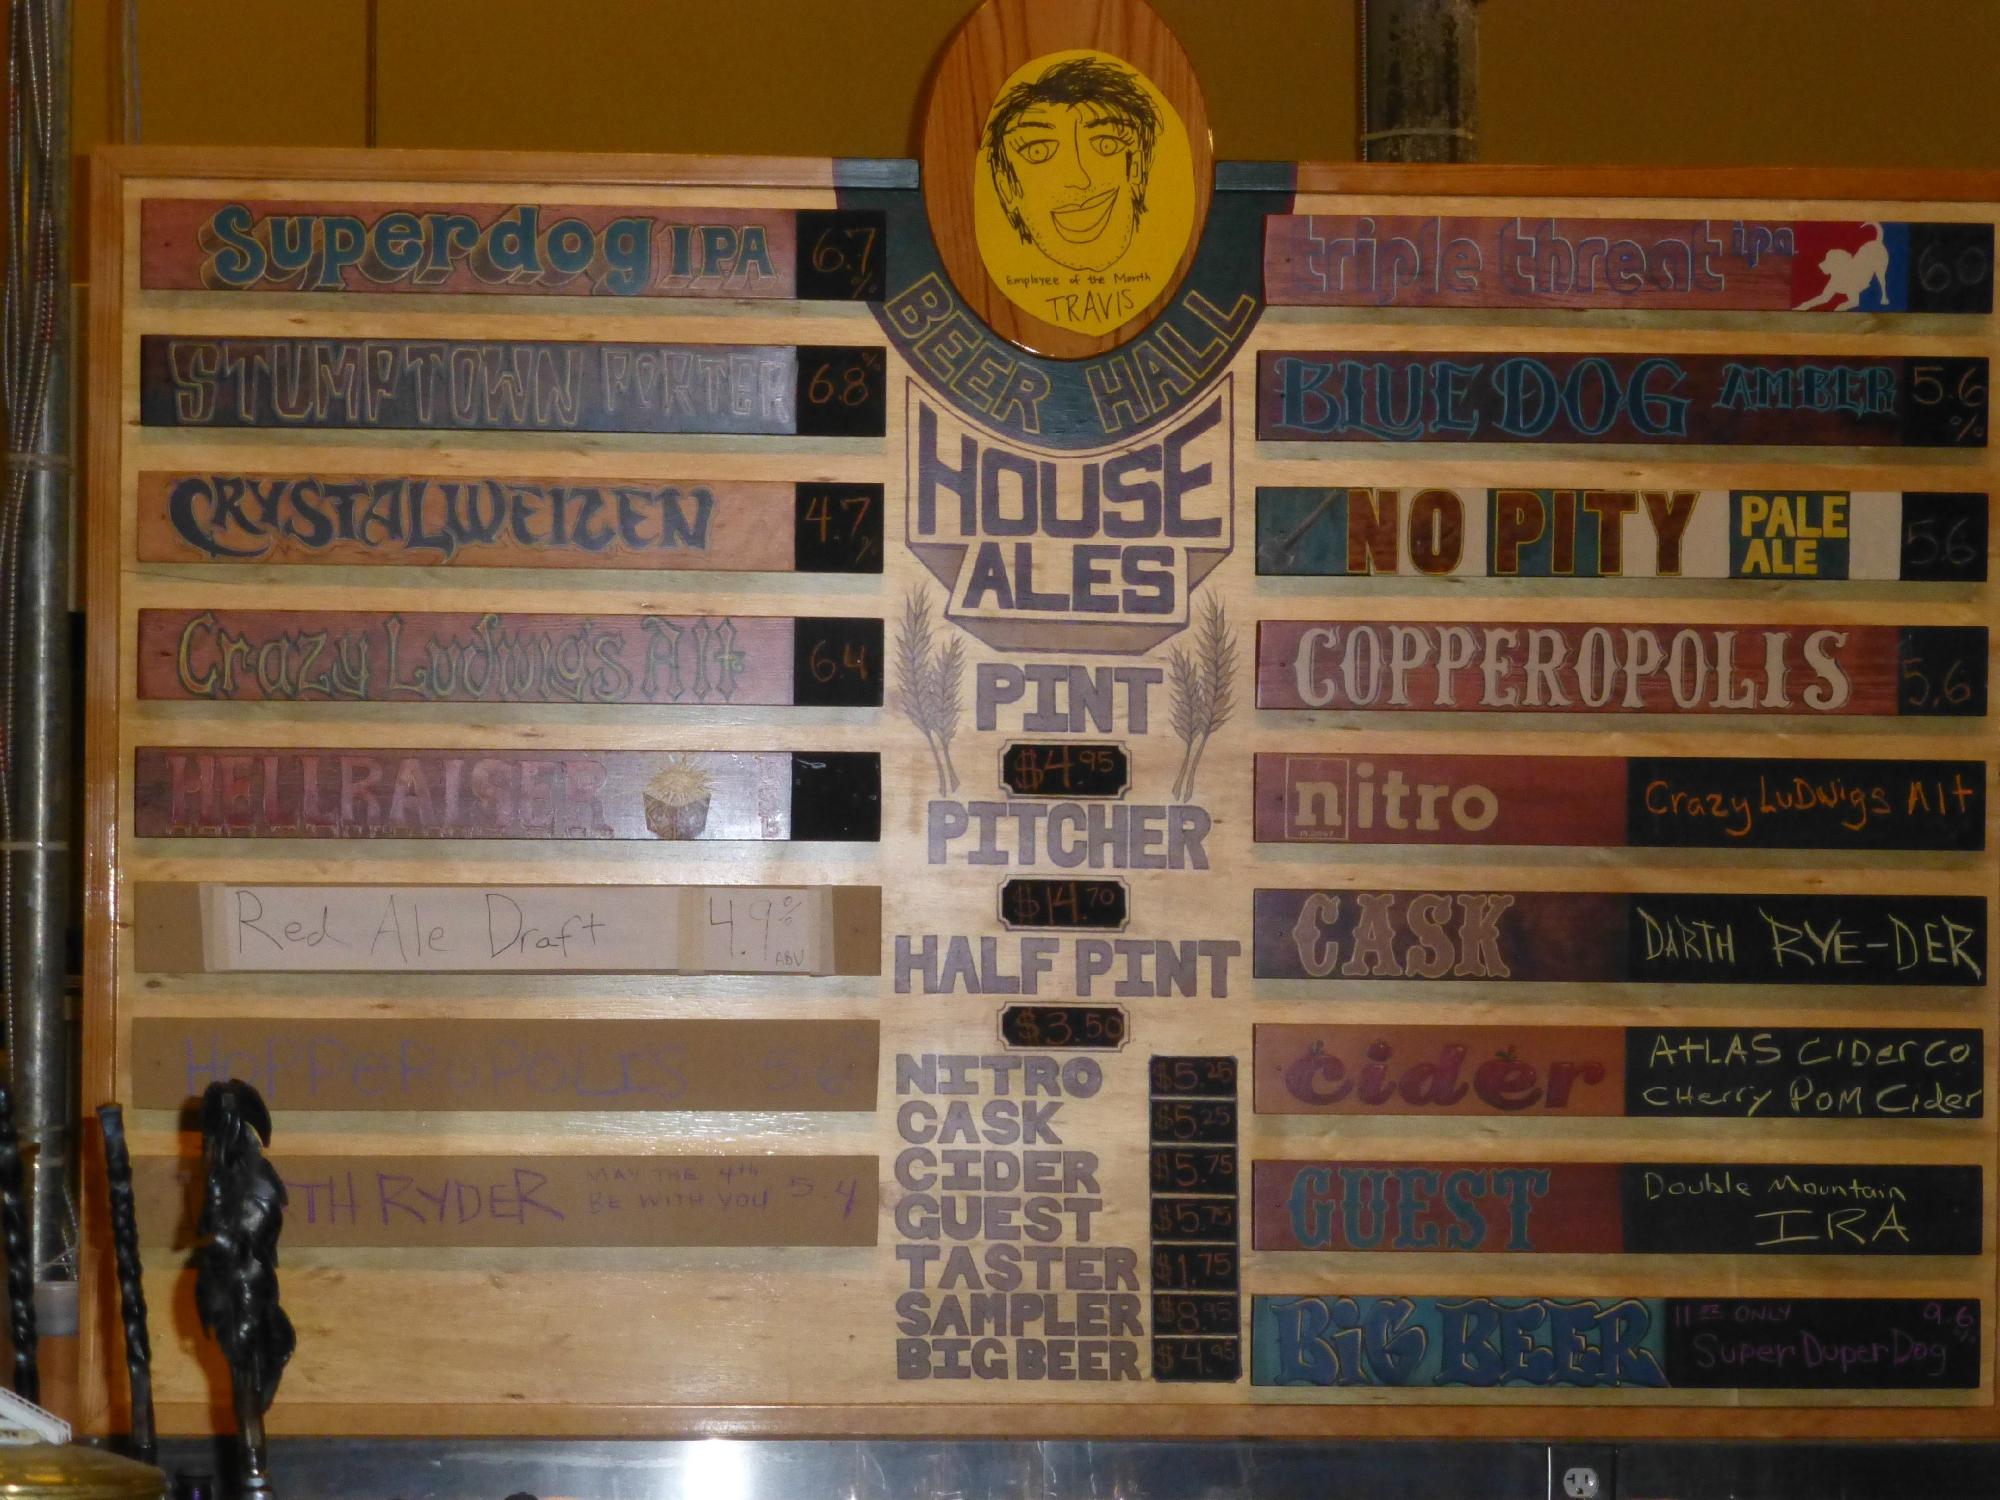 Employee of the Month
TRAVIS
BEER HALL
Superdog IPA 6.7 %
STUMPTOWN PORTER 6.8 %
CRYSTALWEIZEN 4.7 %
Crazy Ludwig's Alt 6.4
HELLRAISER
Red Ale Draft 4.9 %
ABV
HOPPEROPOLIS 5.6
TH RYDER MAY THE 4th 5.4
BE WITH YOU
HOUSE
ALES
PINT
$4.95
PITCHER
$14.70
HALF PINT
$3.50
NITRO $5.25
CASK $5.25
CIDER $5.75
GUEST $5.75
TASTER $1.75
SAMPLER $8.95
BIG BEER $4.95
triple threat ipa 60
BLUE DOG AMBER 5.6 %
NO PITY PALE ALE 5.6
COPPEROPOLIS 5.6
nitro Crazy LuDwigs Alt
CASK DARTH RYE-DER
cider ATLAS CIDer CO
CHerry POM Cider
GUEST Double Mountain
IRA
BIG BEER 11 oz ONLY 9.6 %
Super Duper Dog